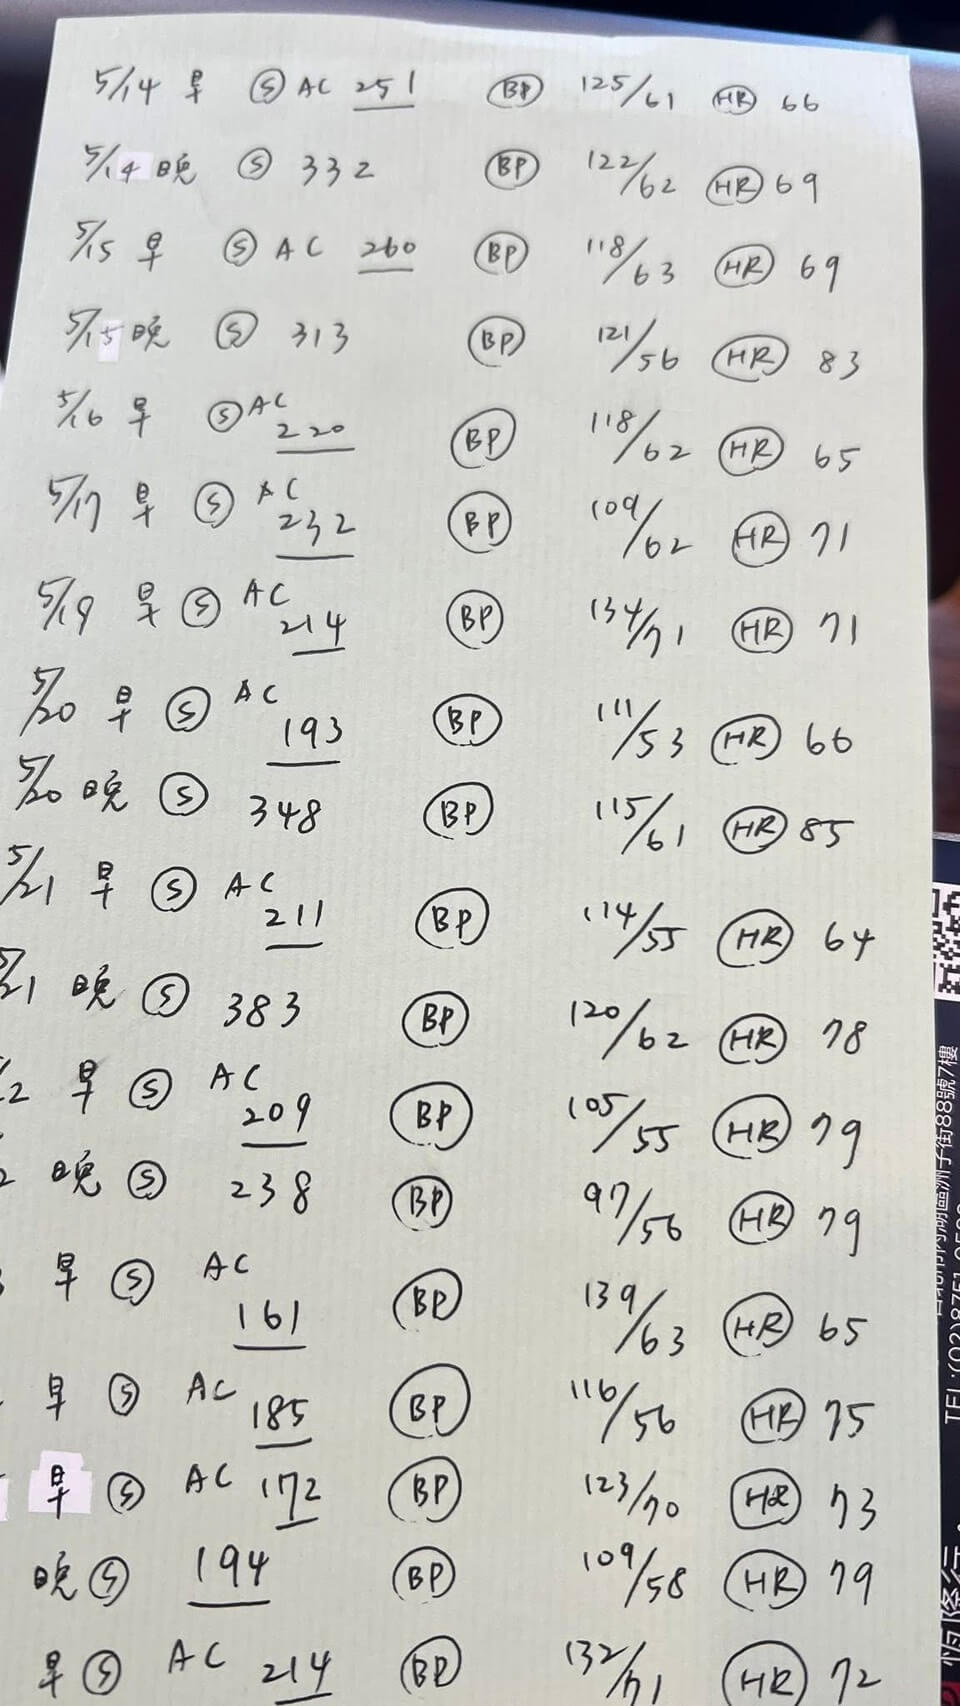 5/14 早 Ⓢ AC 251 BP 125/61 HR 66
5/14 晚 Ⓢ 332 BP 122/62 HR 69
5/15 早 Ⓢ AC 260 BP 118/63 HR 69
5/15 晚 Ⓢ 313 BP 121/56 HR 83
5/16 早 Ⓢ AC 220 BP 118/62 HR 65
5/17 早 Ⓢ AC 232 BP 109/62 HR 71
5/19 早 Ⓢ AC 214 BP 134/71 HR 71
5/20 早 Ⓢ AC 193 BP 111/53 HR 66
5/20 晚 Ⓢ 348 BP 115/61 HR 85
5/21 早 Ⓢ AC 211 BP 114/55 HR 64
5/21 晚 Ⓢ 383 BP 120/62 HR 78
2 早 Ⓢ AC 209 BP 105/55 HR 79
2 晚 Ⓢ 238 BP 97/56 HR 79
早 Ⓢ AC 161 BP 139/63 HR 65
早 Ⓢ AC 185 BP 116/56 HR 75
早 Ⓢ AC 172 BP 123/70 HR 73
晚 Ⓢ 194 BP 109/58 HR 79
早 Ⓢ AC 214 BP 132/71 HR 72
台北市內湖區洲子街88號7樓
TEL:(02)8751